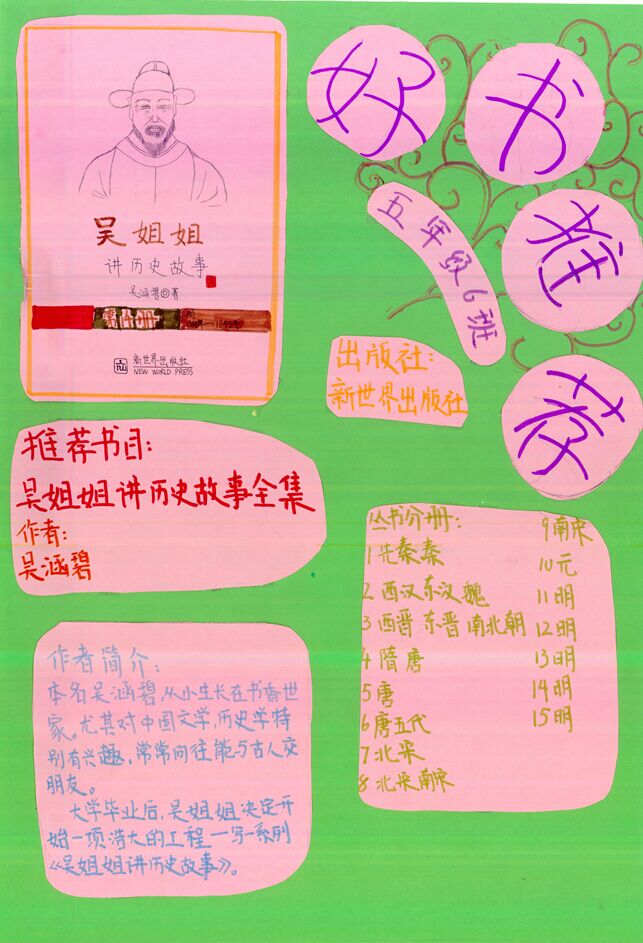 吴姐姐
讲历史故事
吴涵碧◎著
新世界出版社
NEW WORLD PRESS
好书推荐
五年级6班
出版社:
新世界出版社
推荐书目:
吴姐姐讲历史故事全集
作者:
吴涵碧
丛书分册:
1先秦秦
2西汉东汉魏
3西晋东晋南北朝
4隋唐
5唐
6唐五代
7北宋
8北宋南宋
9南宋
10元
11明
12明
13明
14明
15明
作者简介:
本名吴涵碧,从小生长在书香世
家。尤其对中国文学,历史学特
别有兴趣,常常向往能与古人交
朋友。
大学毕业后,吴姐姐决定开
始一项浩大的工程一写一系列
《吴姐姐讲历史故事》。